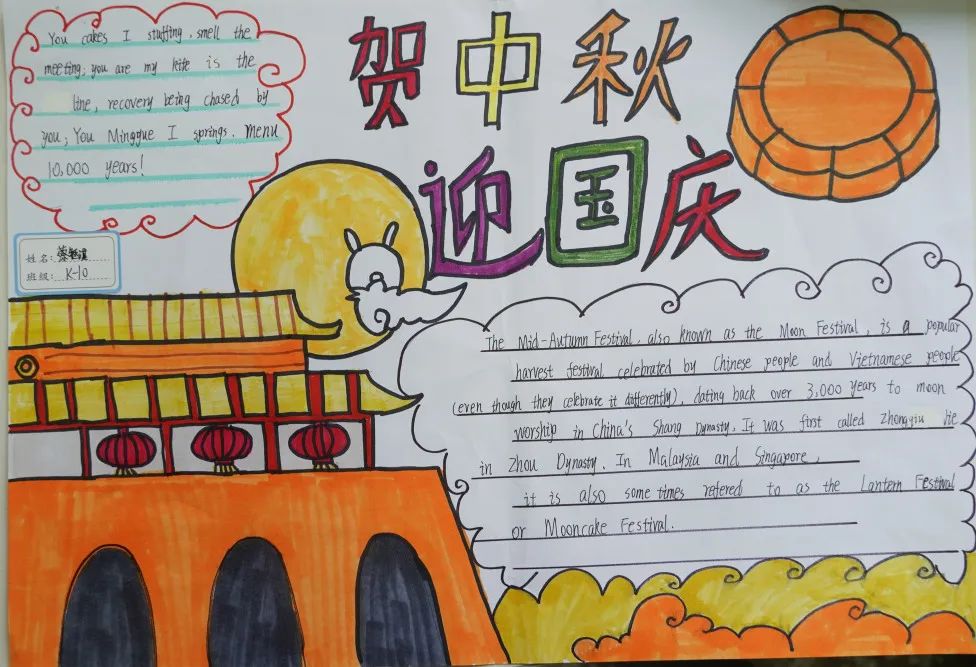 贺中秋
迎国庆
You cakes I stuffing, smell the
meeting; you are my kite is the
line, recovery being chased by
you; You Mingyue I springs. Menu
10,000 years!
姓名:
班级: K-10
The Mid-Autumn Festival, also known as the Moon Festival, is a popular
harvest festival celebrated by Chinese people and Vietnamese people
(even though they celebrate it differently), dating back over 3,000 years to moon
worship in China's Shang Dynasty. It was first called Zhongqiu Jie
in Zhou Dynasty. In Malaysia and Singapore,
it is also sometimes refered to as the Lantern Festival
or Mooncake Festival.